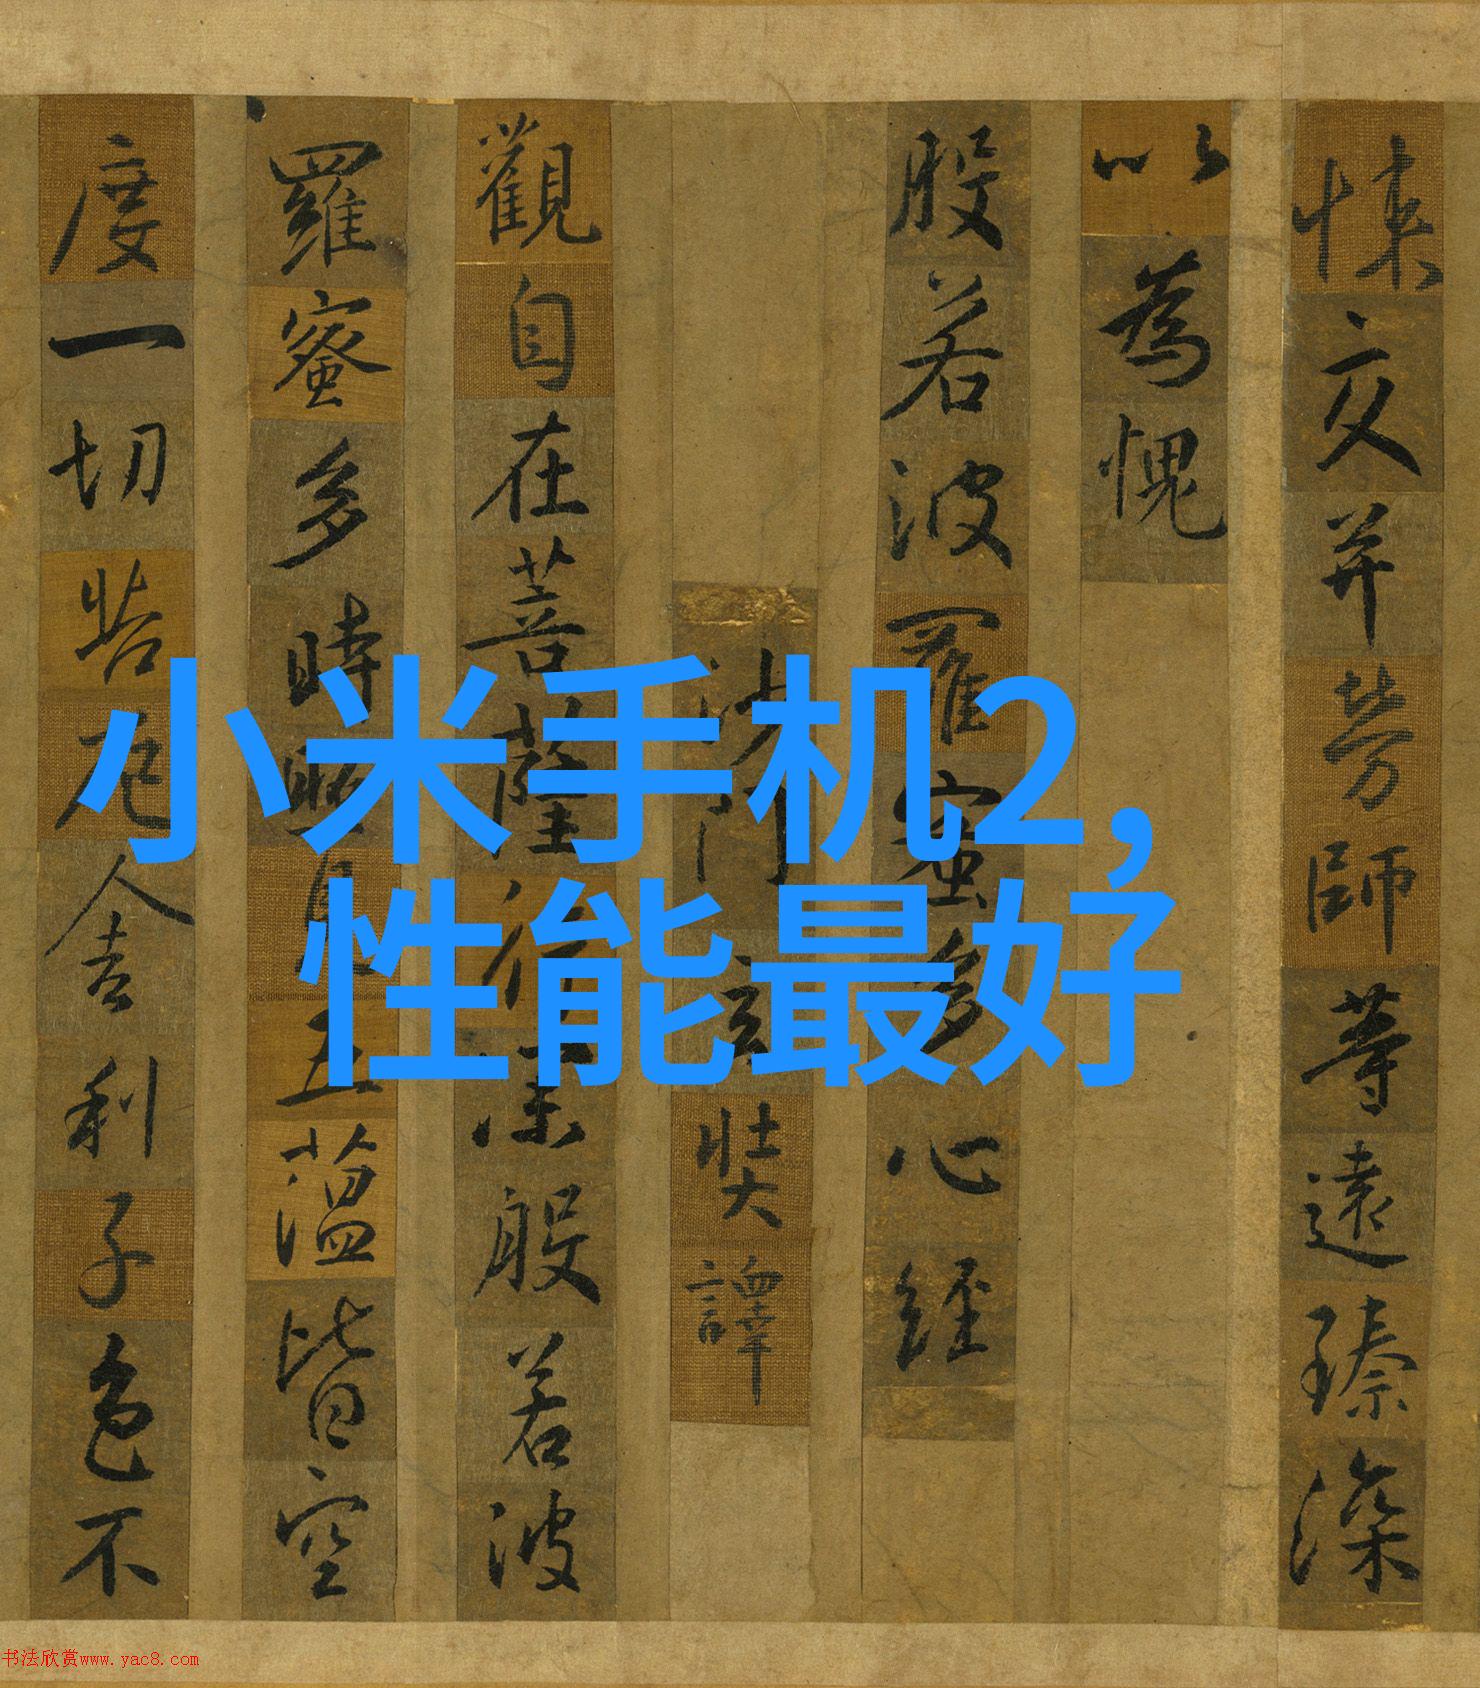 悚交并勞師等遠臻深
以為愧
般若波羅蜜多心經
沙門玄奘譯
觀自在菩薩行深般若波
羅蜜多時照見五蘊皆空
度一切苦厄舍利子色不
小米手机2,
性能最好
书法欣赏www.yac8.com